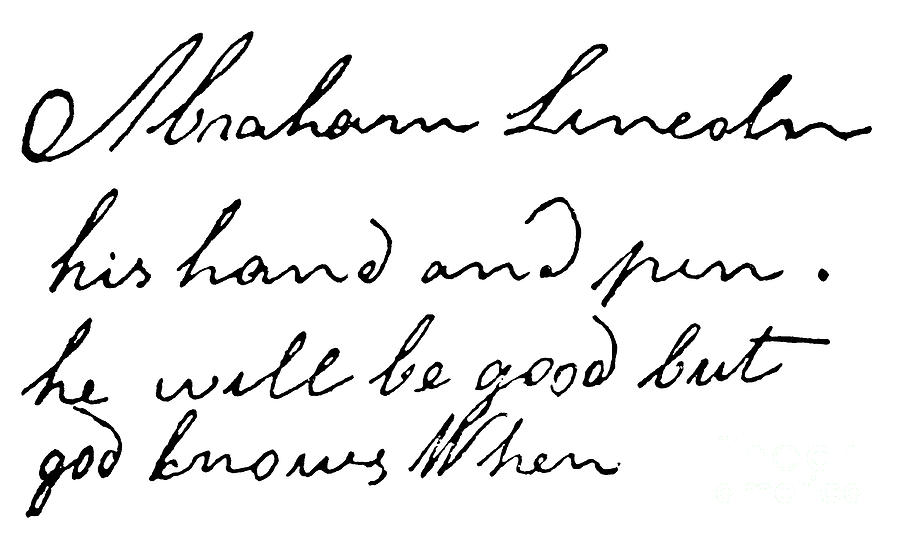 Abraham Lincoln
his hand and pen .
he will be good but
god knows When